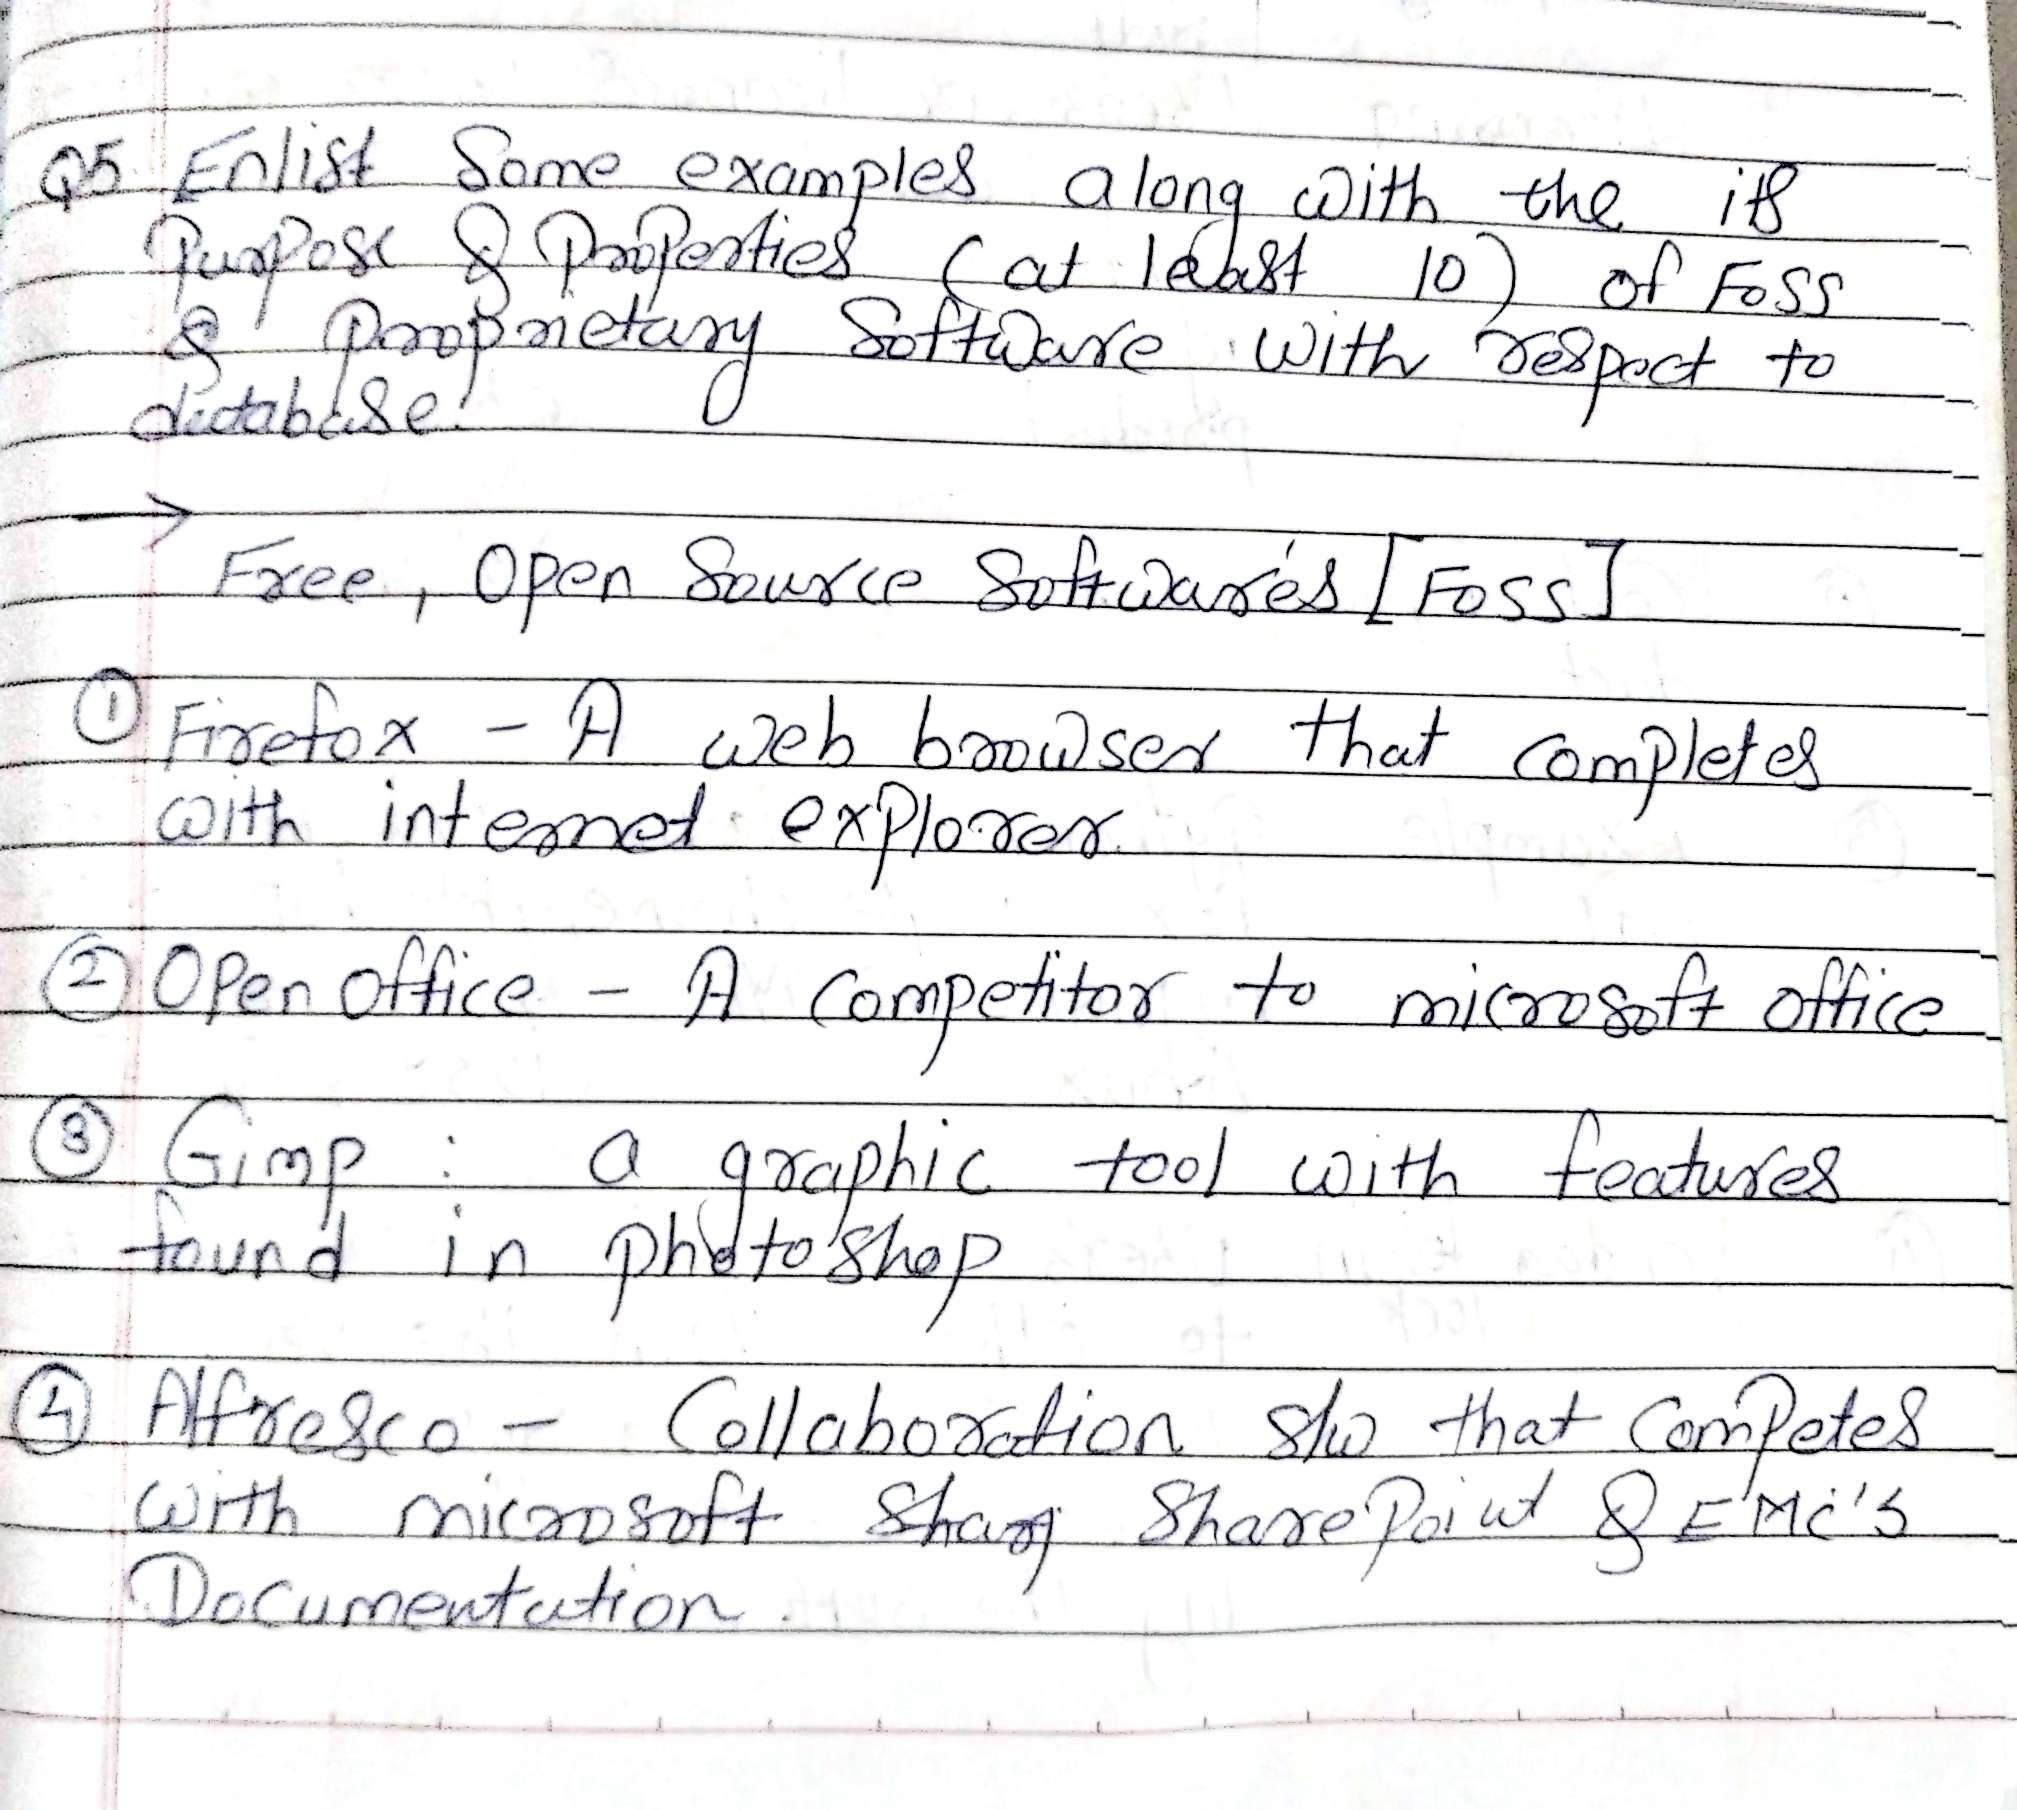 Q5 Enlist Some examples along with the its
Purpose & Properties (at least 10) of FOSS
& Proprietary Software with respect to
database.
→
Free, Open Source Software's [FOSS]
① Firefox - A web browser that completes
with internet explorer.
② Open Office - A competitor to microsoft office
③ Gimp : a graphic tool with features
found in photoshop
④ Alfresco - Collaboration s/w that Competes
with microsoft SharePoint & EMC's
Documentation.